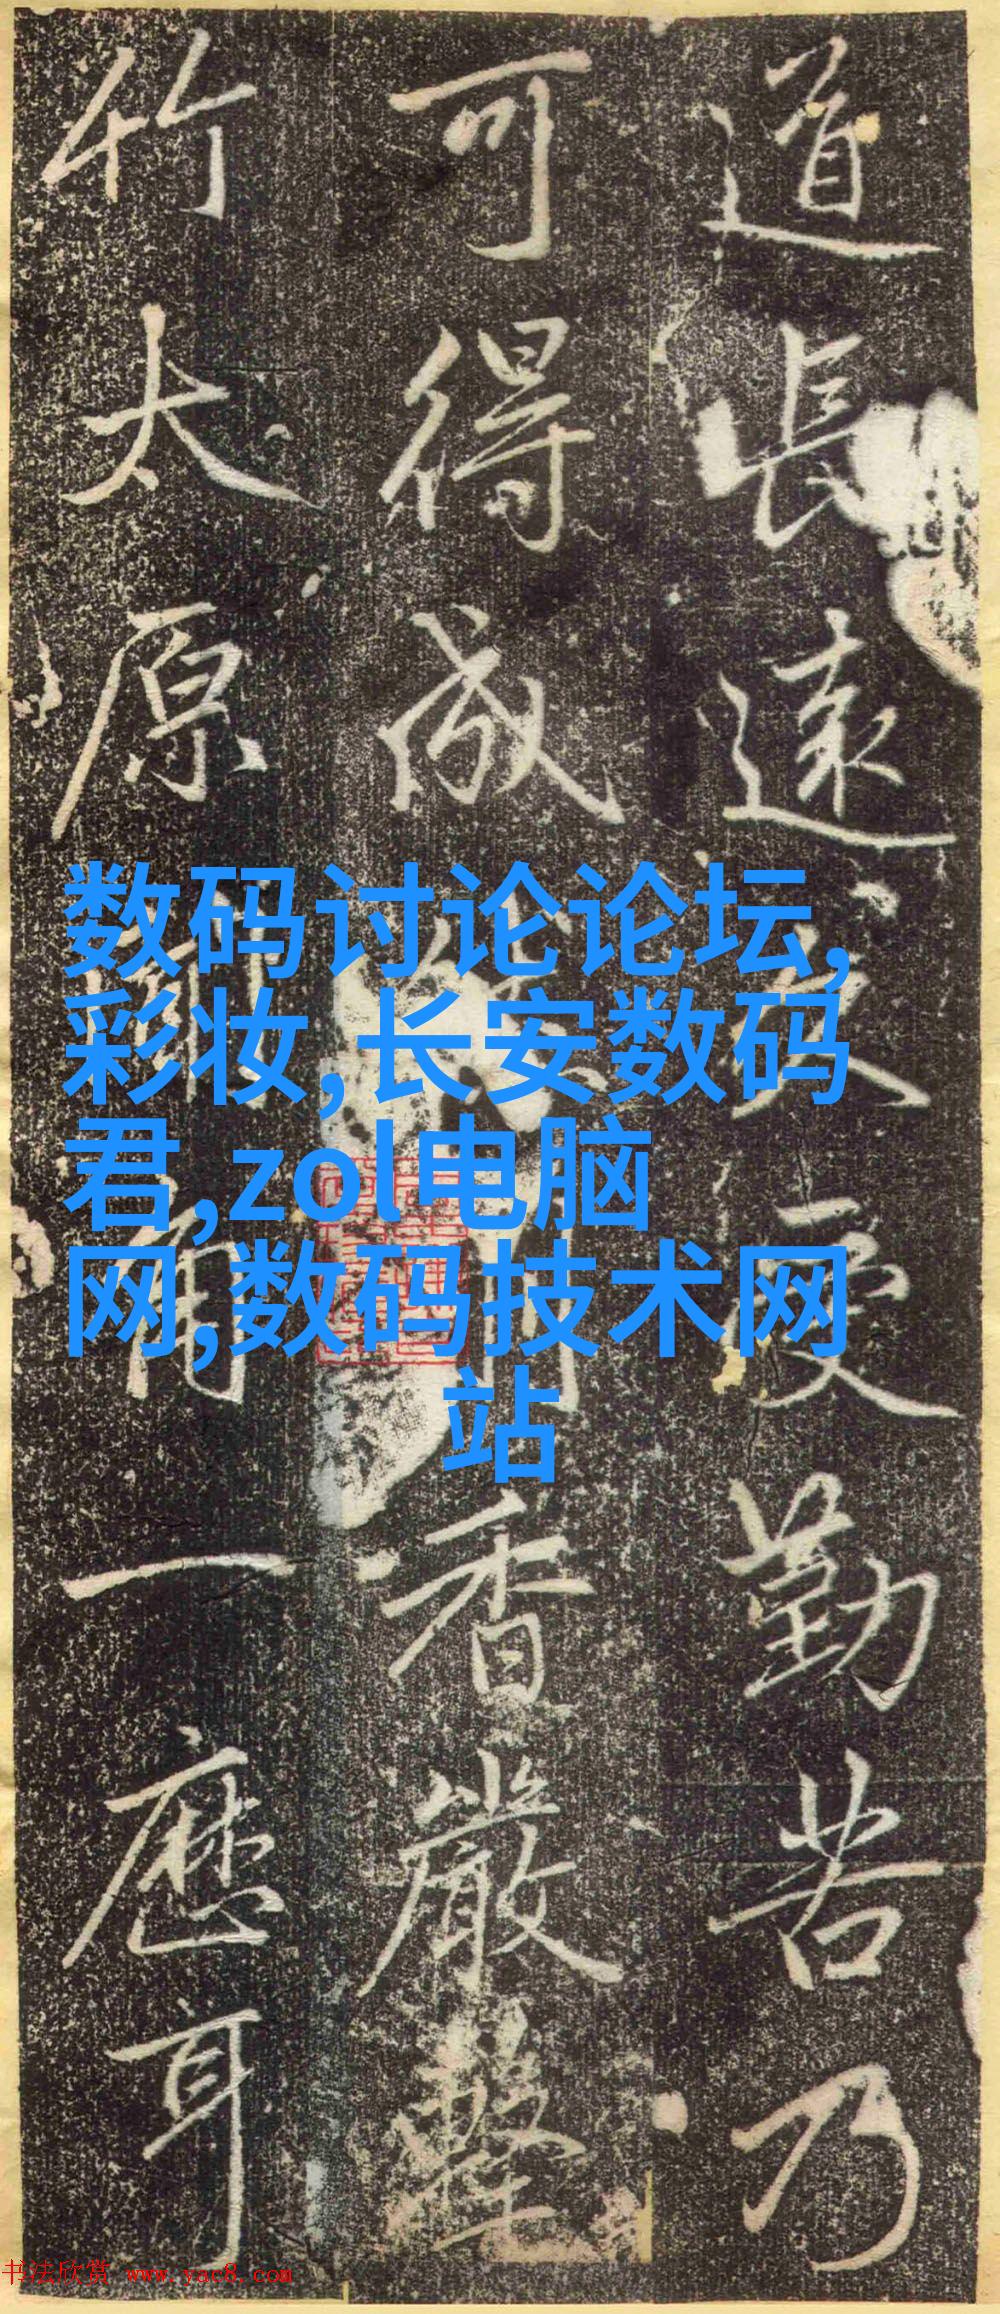 道長遠久受勤苦乃
可得成香嚴擊
竹太原聞角一應耳
数码讨论论坛,
彩妆,长安数码
君,zol电脑
网,数码技术网
站
书法欣赏 www.yac8.com